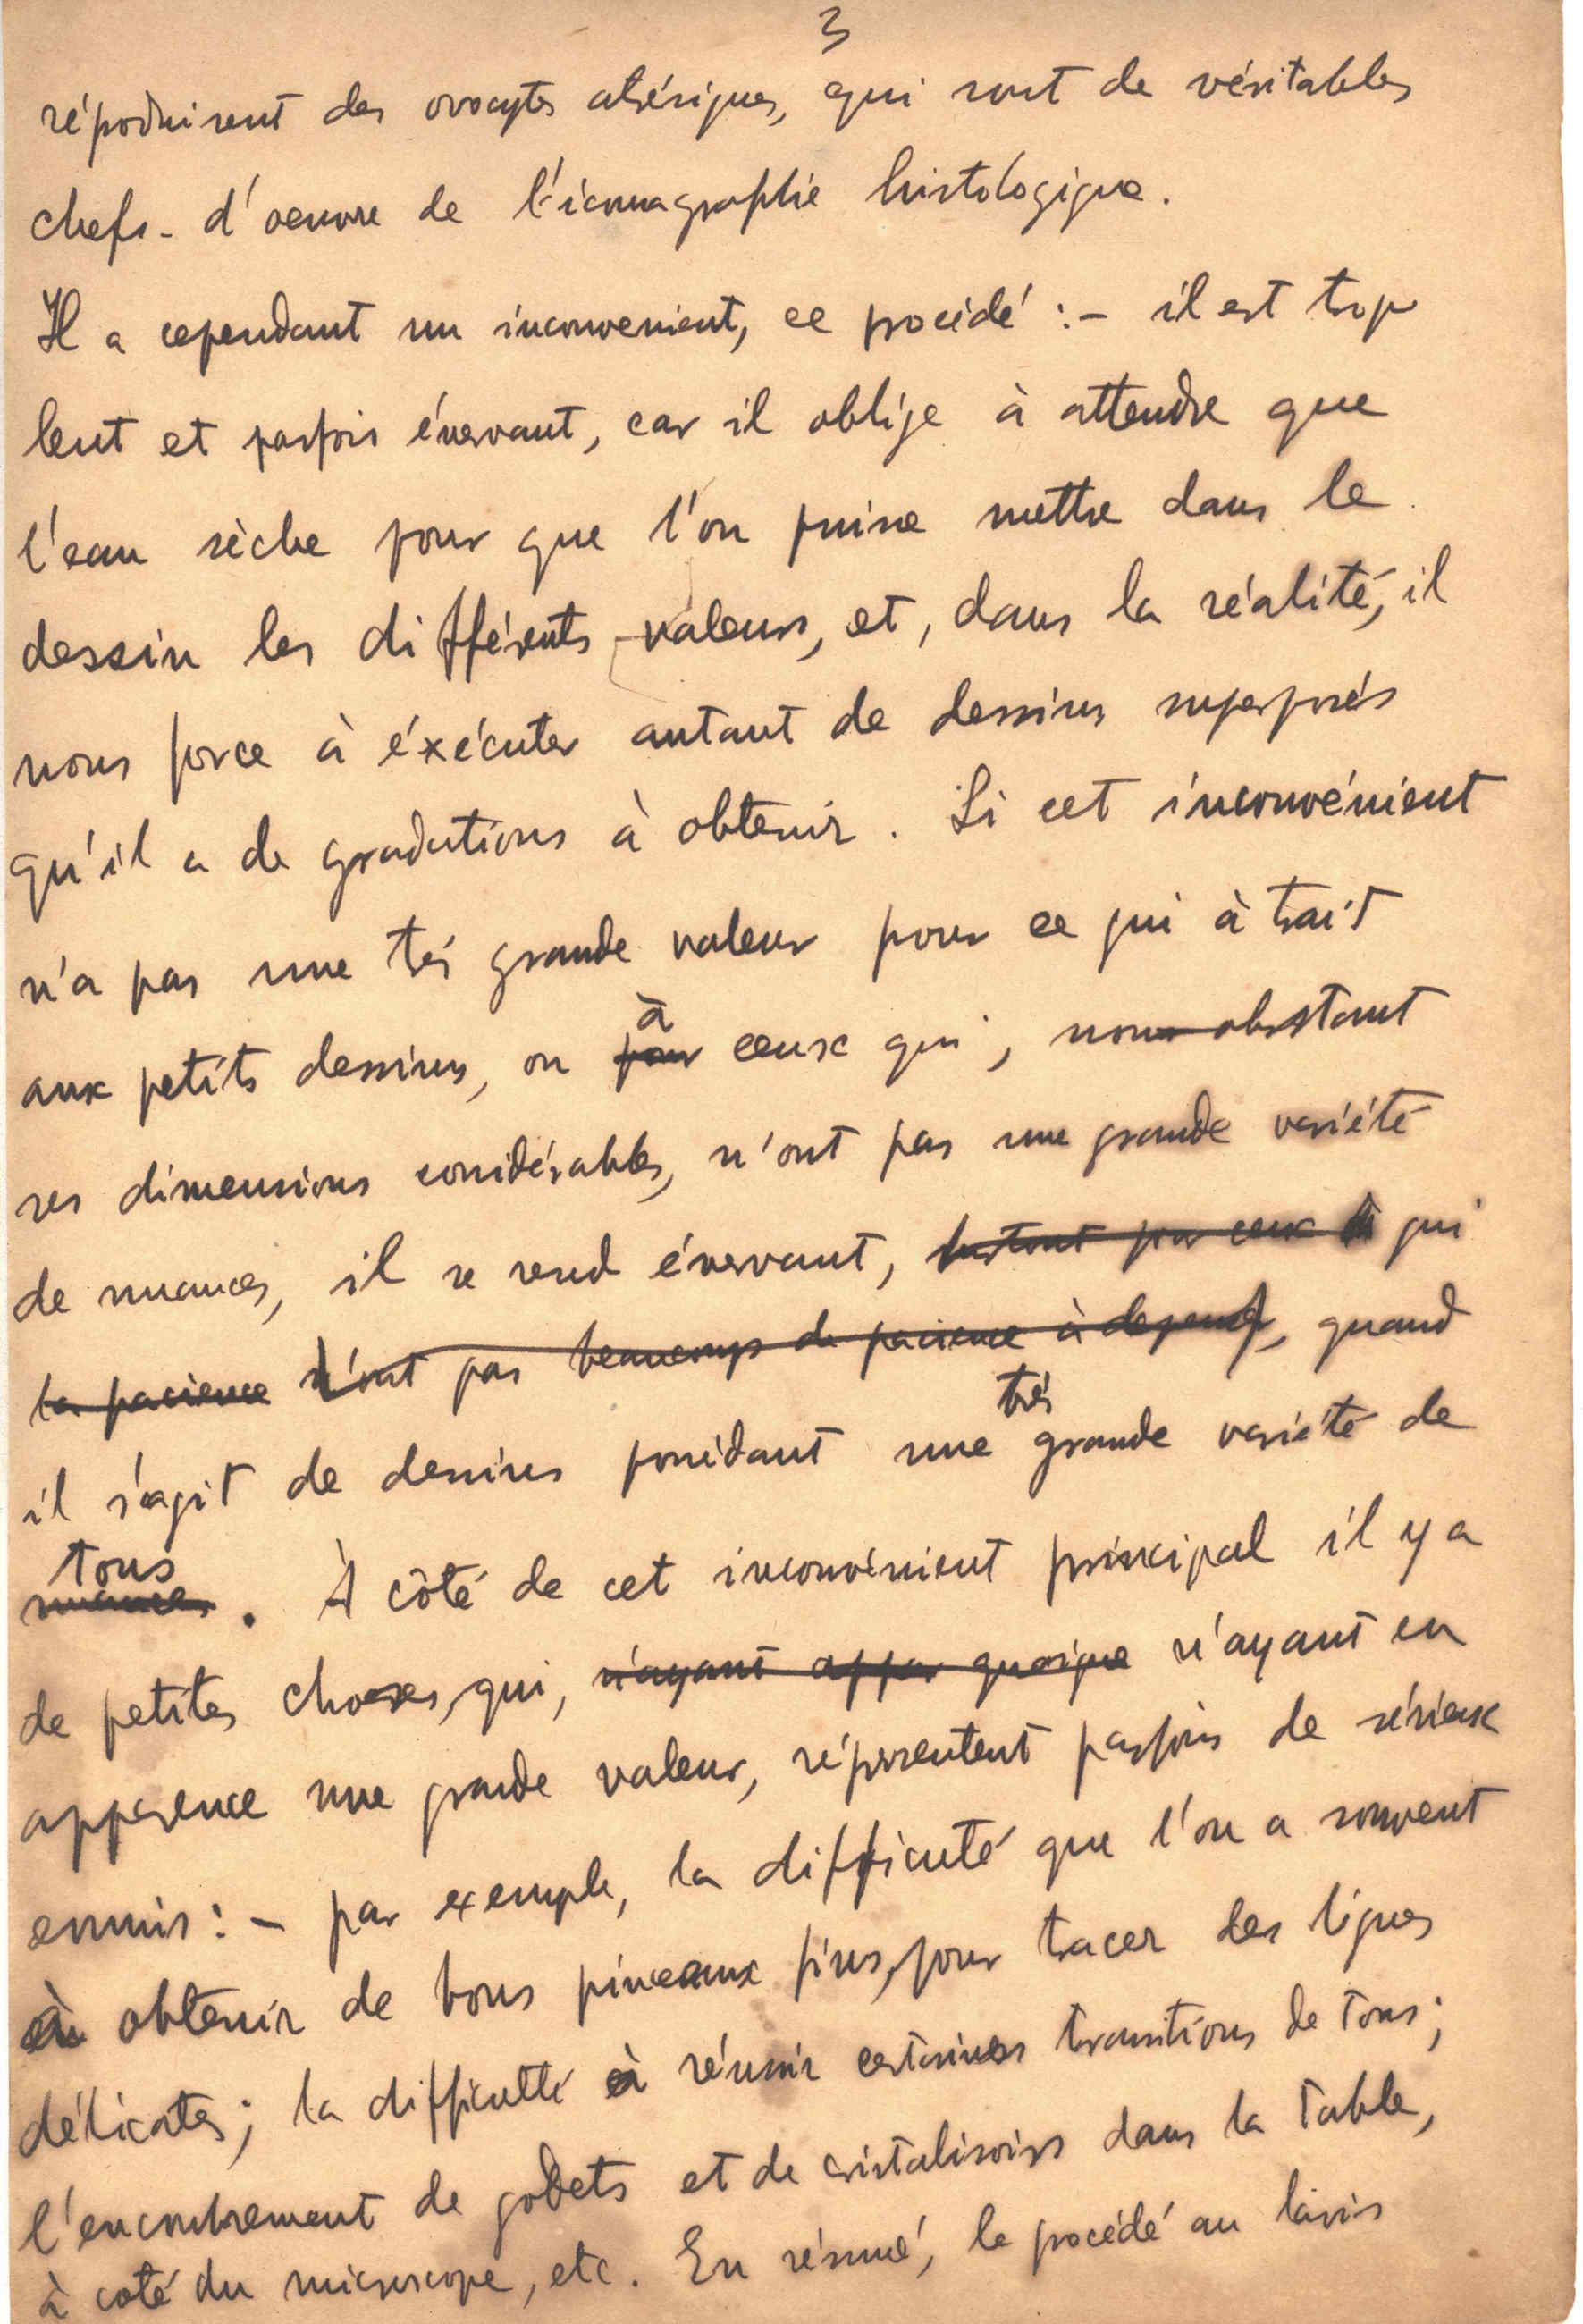 3
réproduisent des ovocytes atrésiques, qui sont de véritables
chefs-d'oeuvre de l'iconagraphie histologique.
Il a cependant un inconvenient, ce procédé :- il est trop
lent et parfois énervant, car il oblige à attendre que
l'eau sèche pour que l'on puisse mettre dans le
dessin les différents valeurs, et, dans la réalité, il
nous force à éxécuter autant de dessins superposés
qu'il a de gradations à obtenir. Si cet inconvénient
n'a pas une très grande valeur pour ce qui à trait
à
aux petits dessins, ou pour ceux qui, non obstant
ses dimensions considérables, n'ont pas une grande variété
de nuances, il se rend énervant, surtout pour ceux qui
la pacience n'ont pas beaucoup de pacience à depenser, quand
très
il s'agit de dessins possédant une grande varieté de
tons
nuances. À côté de cet inconvénient principal il y a
de petites choses, qui, n'ayant appar quoique n'ayant en
apparence une grande valeur, répresentent parfois de sérieux
ennuis :- par exemple, la difficuté que l'on a souvent
à obtenir de bons pinceaux fins, pour tracer des lignes
délicates; la difficulté à réussir certaines transitions de tons;
l'encombrement de godets et de cristalisoirs dans la table,
à coté du microscope, etc. En résumé, le procédé au lavis